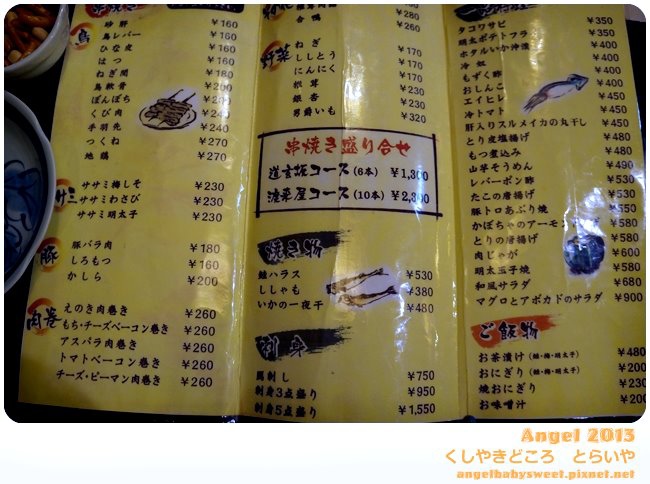 鳥
砂肝 ¥160
鳥レバー ¥160
ひな皮 ¥160
はつ ¥160
ねぎ間 ¥180
鳥軟骨 ¥200
ぼんぼち ¥200
くび肉 ¥240
手羽先 ¥240
つくね ¥270
地鶏 ¥270
ササミ梅しそ ¥230
ササミわさび ¥230
ササミ明太子 ¥230
豚
豚バラ肉 ¥180
しろもつ ¥160
かしら ¥200
肉巻
えのき肉巻き ¥260
もち・チーズベーコン巻き ¥260
アスパラ肉巻き ¥260
トマトベーコン巻き ¥260
チーズ・ピーマン肉巻き ¥260
合鴨
野菜
ねぎ ¥170
ししとう ¥170
にんにく ¥170
椎茸 ¥170
銀杏 ¥260
男爵いも ¥320
串焼き盛り合せ
道玄坂コース(6本) ¥1,300
渡来屋コース(10本) ¥2,300
焼き物
鮭ハラス ¥530
ししゃも ¥380
いかの一夜干 ¥530
刺身
馬刺し ¥750
刺身3点盛り ¥950
刺身5点盛り ¥1,550
タコワサビ ¥350
明太ポテトフライ ¥450
ホタルいか沖漬 ¥400
冷奴
もずく酢
おしんこ
エイヒレ
冷トマト
肝入りスルメイカの丸干し ¥450
とり皮塩揚げ
もつ煮込み
山芋そうめん
レバーポン酢
たこの唐揚げ
豚トロあぶり焼
かぼちゃのアーモンド
とりの唐揚げ
肉じゃが
明太玉子焼 ¥580
和風サラダ ¥680
マグロとアボカドのサラダ ¥900
ご飯物
お茶漬け(鮭・梅・明太子) ¥480
おにぎり(鮭・梅・明太子) ¥200
焼おにぎり ¥230
お味噌汁 ¥200
Angel 2013
くしやきどころ とらいや
angelbabysweet.pixnet.net